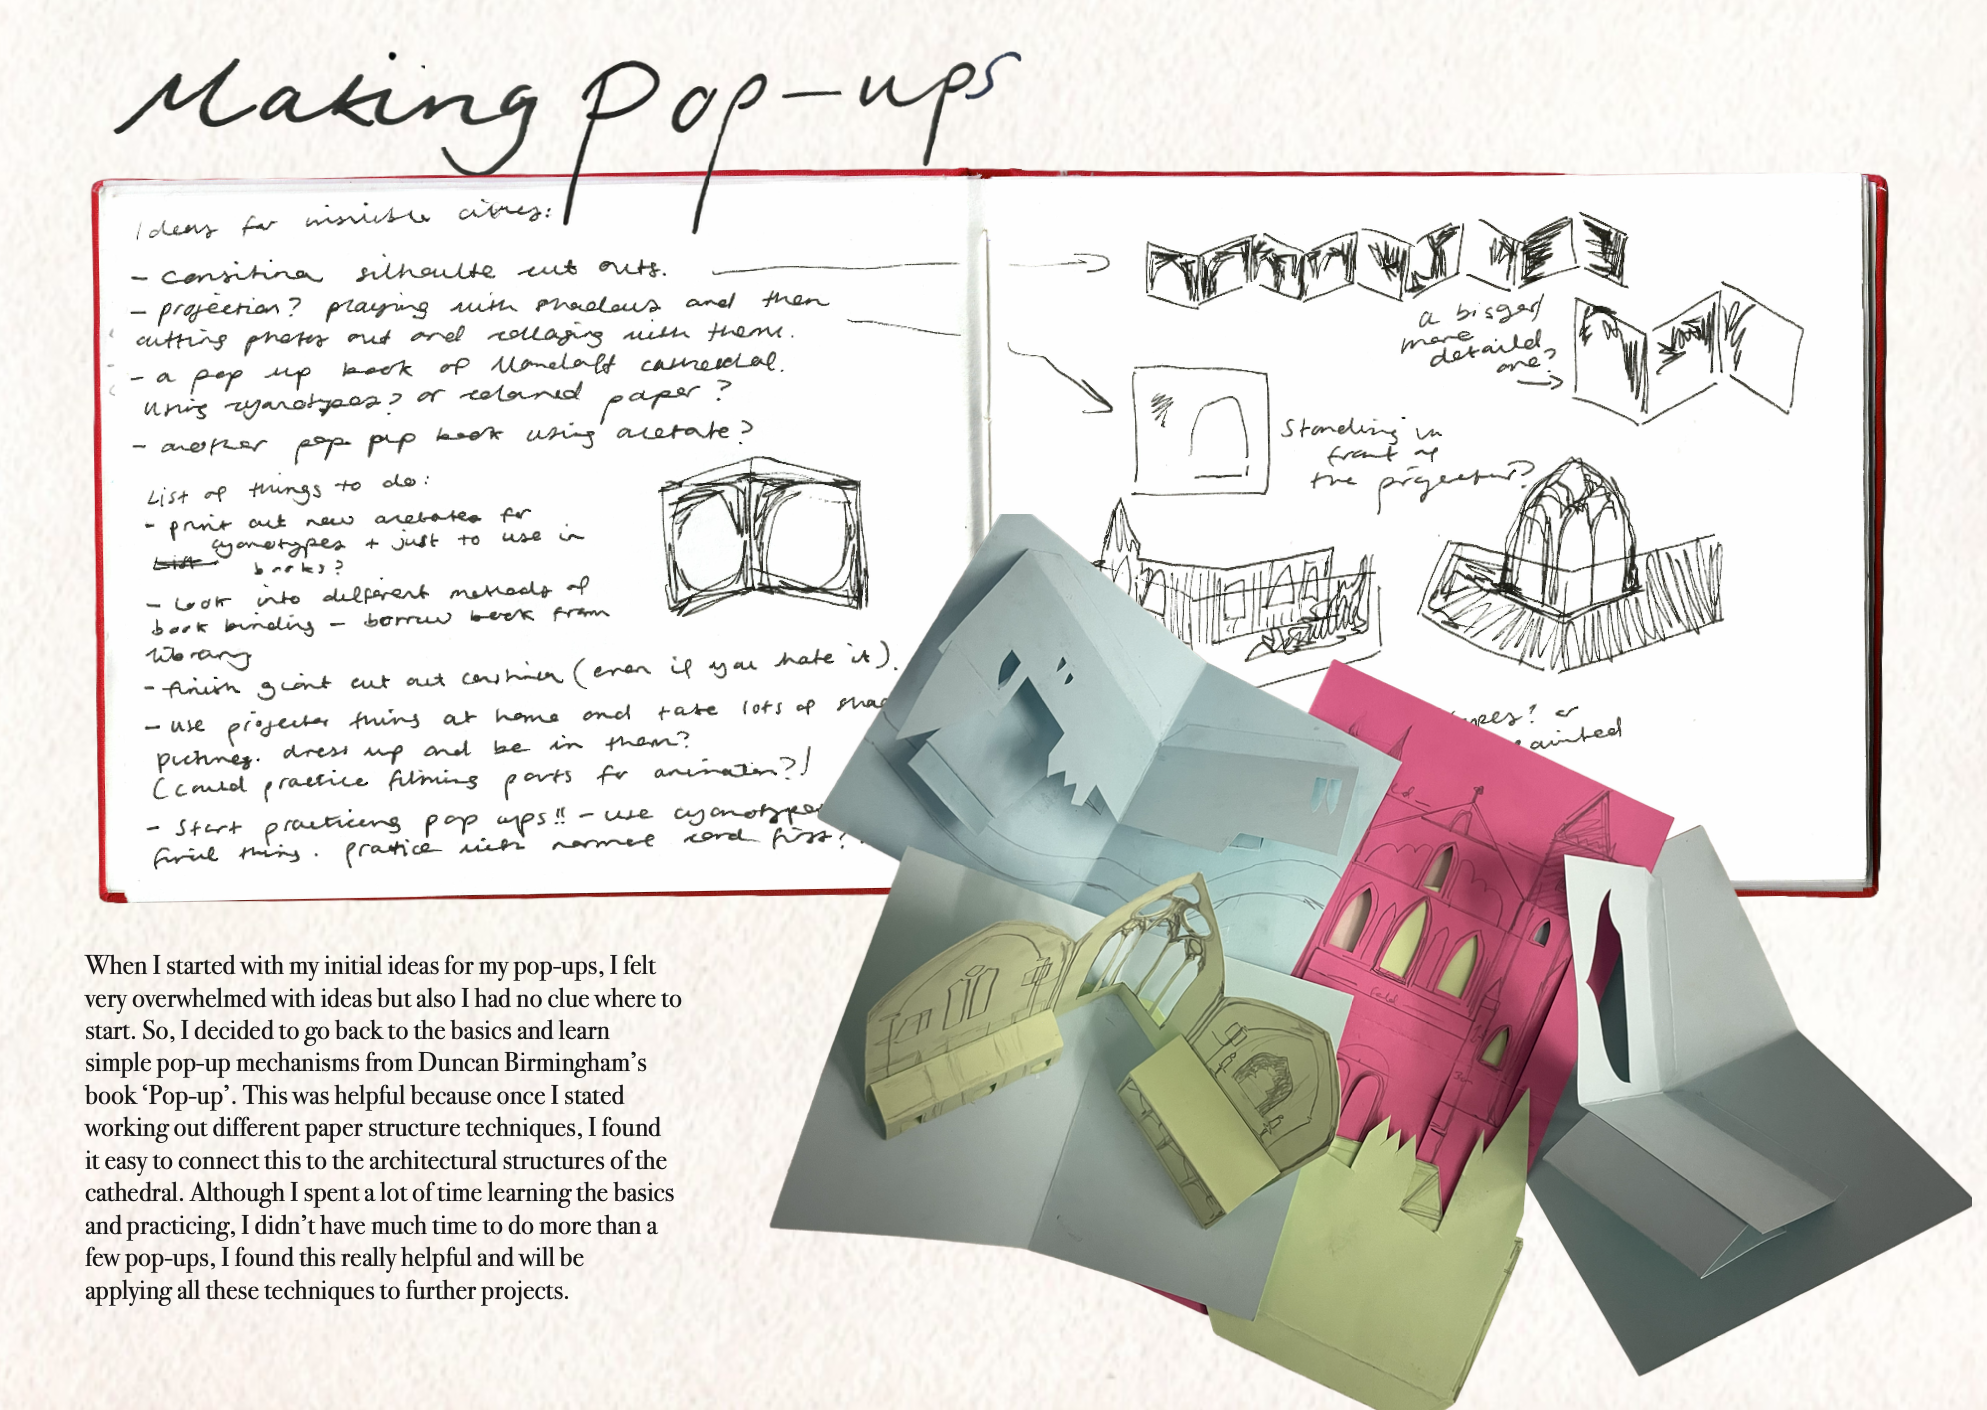 Making Pop-ups
Ideas for invisible cities:
- silhoulte cut outs.
- projection? playing with shadows and then
cutting photos out and collaging with them.
- a pop up book of Llandaff cathedral.
using cyanotypes? or coloured paper?
- another pop pup book using acetate?
List of things to do:
- print out new acetates for
cyanotypes + just to use in
List books?
- Look into different methods of
book binding - borrow book from
library
- finish giant cut out (even if you hate it).
- use projector thing at home and take lots of shad
pictures. dress up and be in them?
(could practice filming parts for animation?)
- Start practicing pop ups!! - use cyanotypes
final thing. practice with normal card first?
a bigger/
more
detailed
one?
Standing in
front of
the projector?
ypes? or
painted
field
When I started with my initial ideas for my pop-ups, I felt
very overwhelmed with ideas but also I had no clue where to
start. So, I decided to go back to the basics and learn
simple pop-up mechanisms from Duncan Birmingham’s
book ‘Pop-up’. This was helpful because once I stated
working out different paper structure techniques, I found
it easy to connect this to the architectural structures of the
cathedral. Although I spent a lot of time learning the basics
and practicing, I didn’t have much time to do more than a
few pop-ups, I found this really helpful and will be
applying all these techniques to further projects.